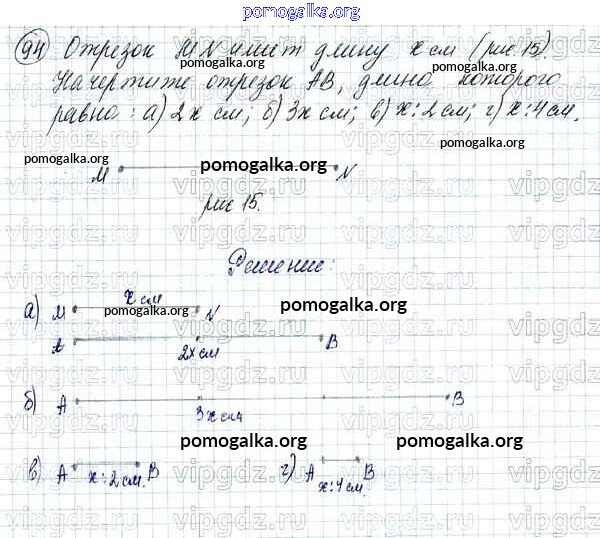 pomogalka.org
94 Отрезок MN имеет длину x см (рис 15).
pomogalka.org pomogalka.org
Начертите отрезок AB, длина которого
равна: а) 2x см; б) 3x см; в) x:2 см; г) x:4 см.
pomogalka.org pomogalka.org
pomogalka.org
M N
рис 15.
Решение:
x см
а) M N
pomogalka.org pomogalka.org
A B
2x см
б) A B
3x см
pomogalka.org pomogalka.org
в) A B г) A B
x:2 см. x:4 см.
vipgdz.ru